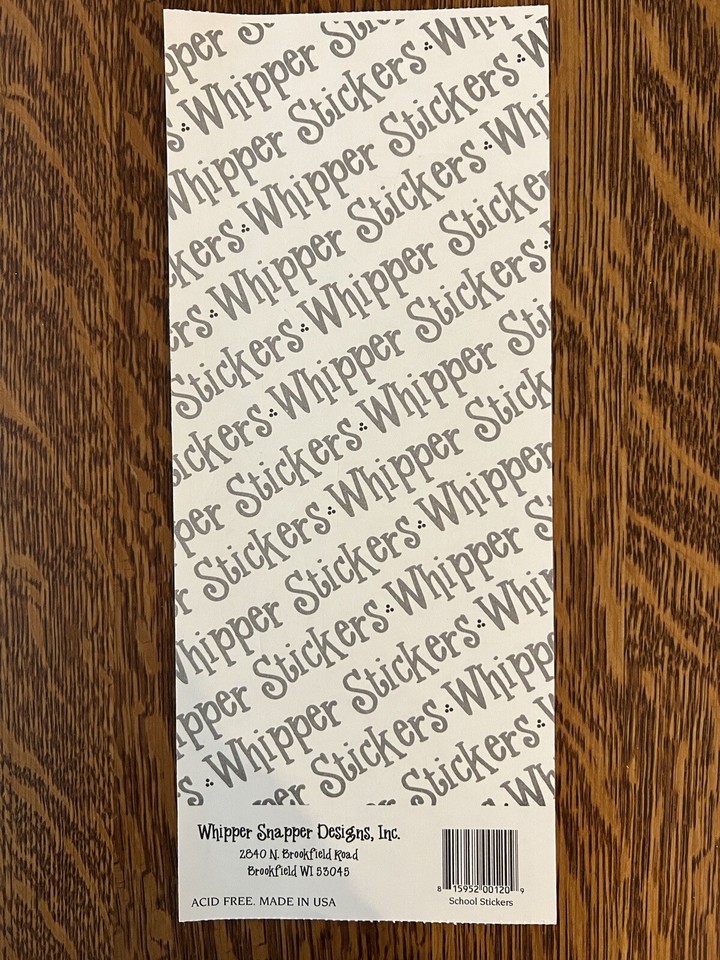 pper
s Whipper Stickers Whip
Whipper Stickers Whi
kers Whipper Stickers
ers Whipper Stickers Whi
Stickers Whipper Sticker
ickers Whipper Stickers
per Stickers Whipper Sti
r Stickers Whipper Stick
Whipper Stickers Whipper
pper Stickers Whipper S
s Whipper Stickers Whip
Stickers Whipp
Stickers
Wh
Whipper Snapper Designs, Inc.
2840 N. Brookfield Road
Brookfield WI 53045
ACID FREE. MADE IN USA
8 15952 00120 9
School Stickers